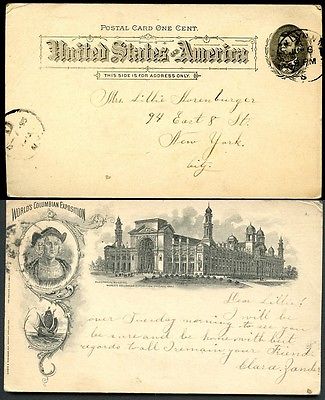 POSTAL CARD ONE CENT.
United States of America
THIS SIDE IS FOR ADDRESS ONLY.
Mrs. Lillie Horenburger
94 East 8 St.
New York.
City.
WORLD'S COLUMBIAN EXPOSITION
Dear Lillie!
I will be
over Tuesday morning to see you
be sure and be home with best
regards to all I remain your Friend
Clara Zander